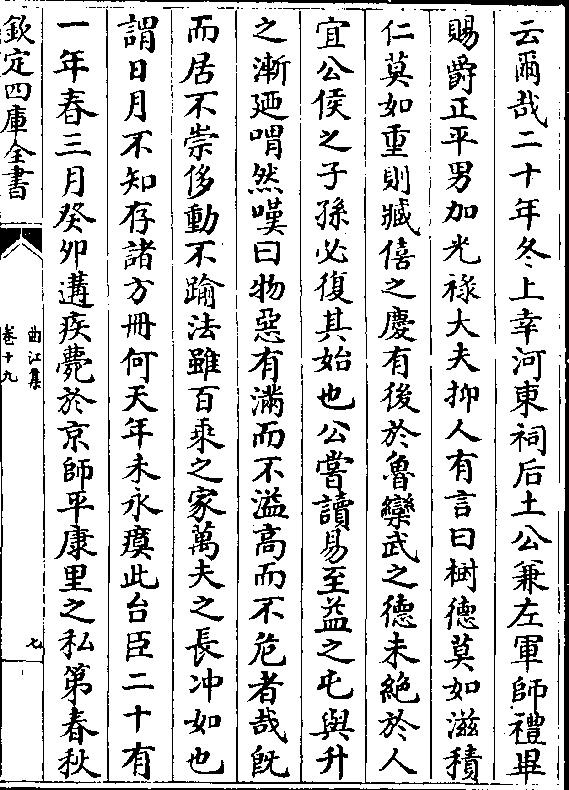 云爾哉二十年冬上幸河東祠后土公兼左軍師禮畢
賜爵正平男加光祿大夫抑人有言曰樹德莫如滋積
仁莫如重則臧僖之慶有後於魯欒武之德未絕於人
宜公侯之子孫必復其始也公嘗讀易至益之屯與升
之漸廼喟然嘆曰物惡有滿而不溢高而不危者哉旣
而居不崇侈動不踰法雖百乘之家萬夫之長冲如也
謂日月不知存諸方冊何天年未永瘼此台臣二十有
一年春三月癸卯遘疾薨於京師平康里之私第春秋
欽定四庫全書
曲江集
卷十九
七